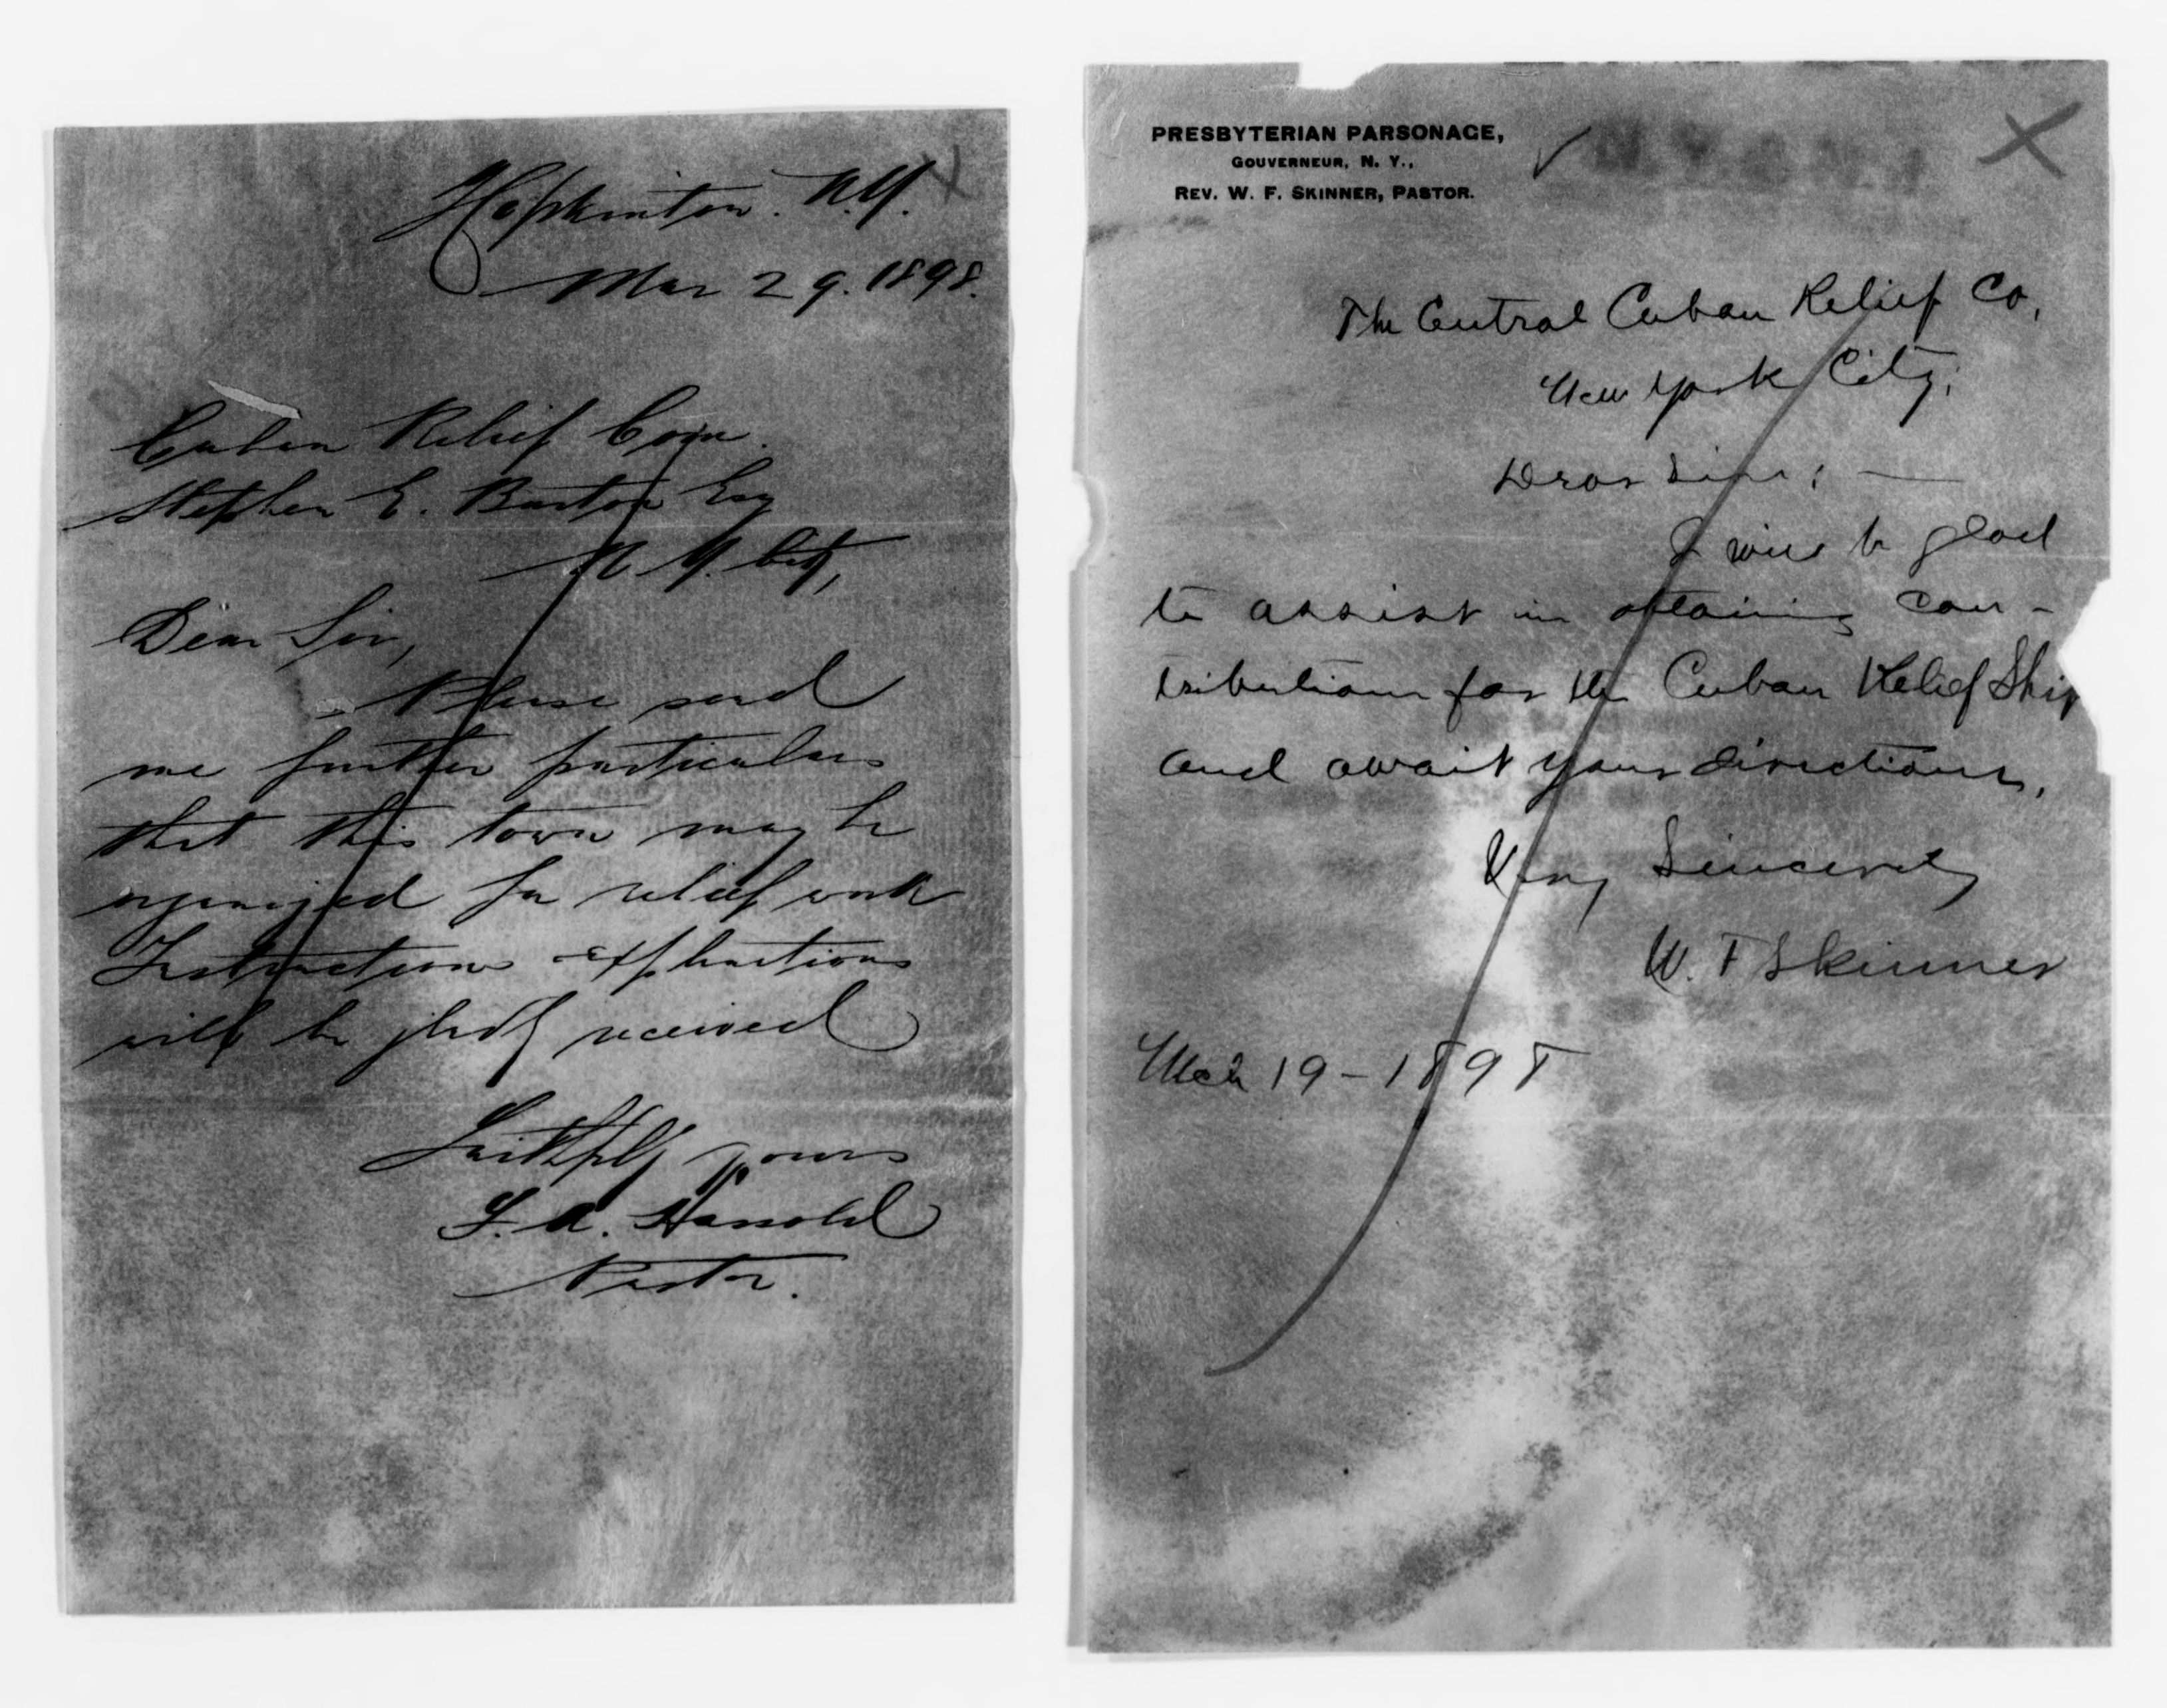 Hopkinton. N.Y.
Mar 29. 1898.
Cuban Relief Com.
Stephen E. Barton Esq
N. Y. City,
Dear Sir,
Please send
me further particulars
that this town may be
organized for relief work
Instructions
will be gladly received
Faithfully yours
Pastor.
PRESBYTERIAN PARSONAGE,
GOUVERNEUR, N. Y.,
REV. W. F. SKINNER, PASTOR.
The Central Cuban Relief Co,
New York City;
Dear Sirs; —
I will be glad
to assist in obtaining con-
tributions for the Cuban Relief Ship
and await your directions,
Very Sincerely
W. F Skinner
Mch 19-1898